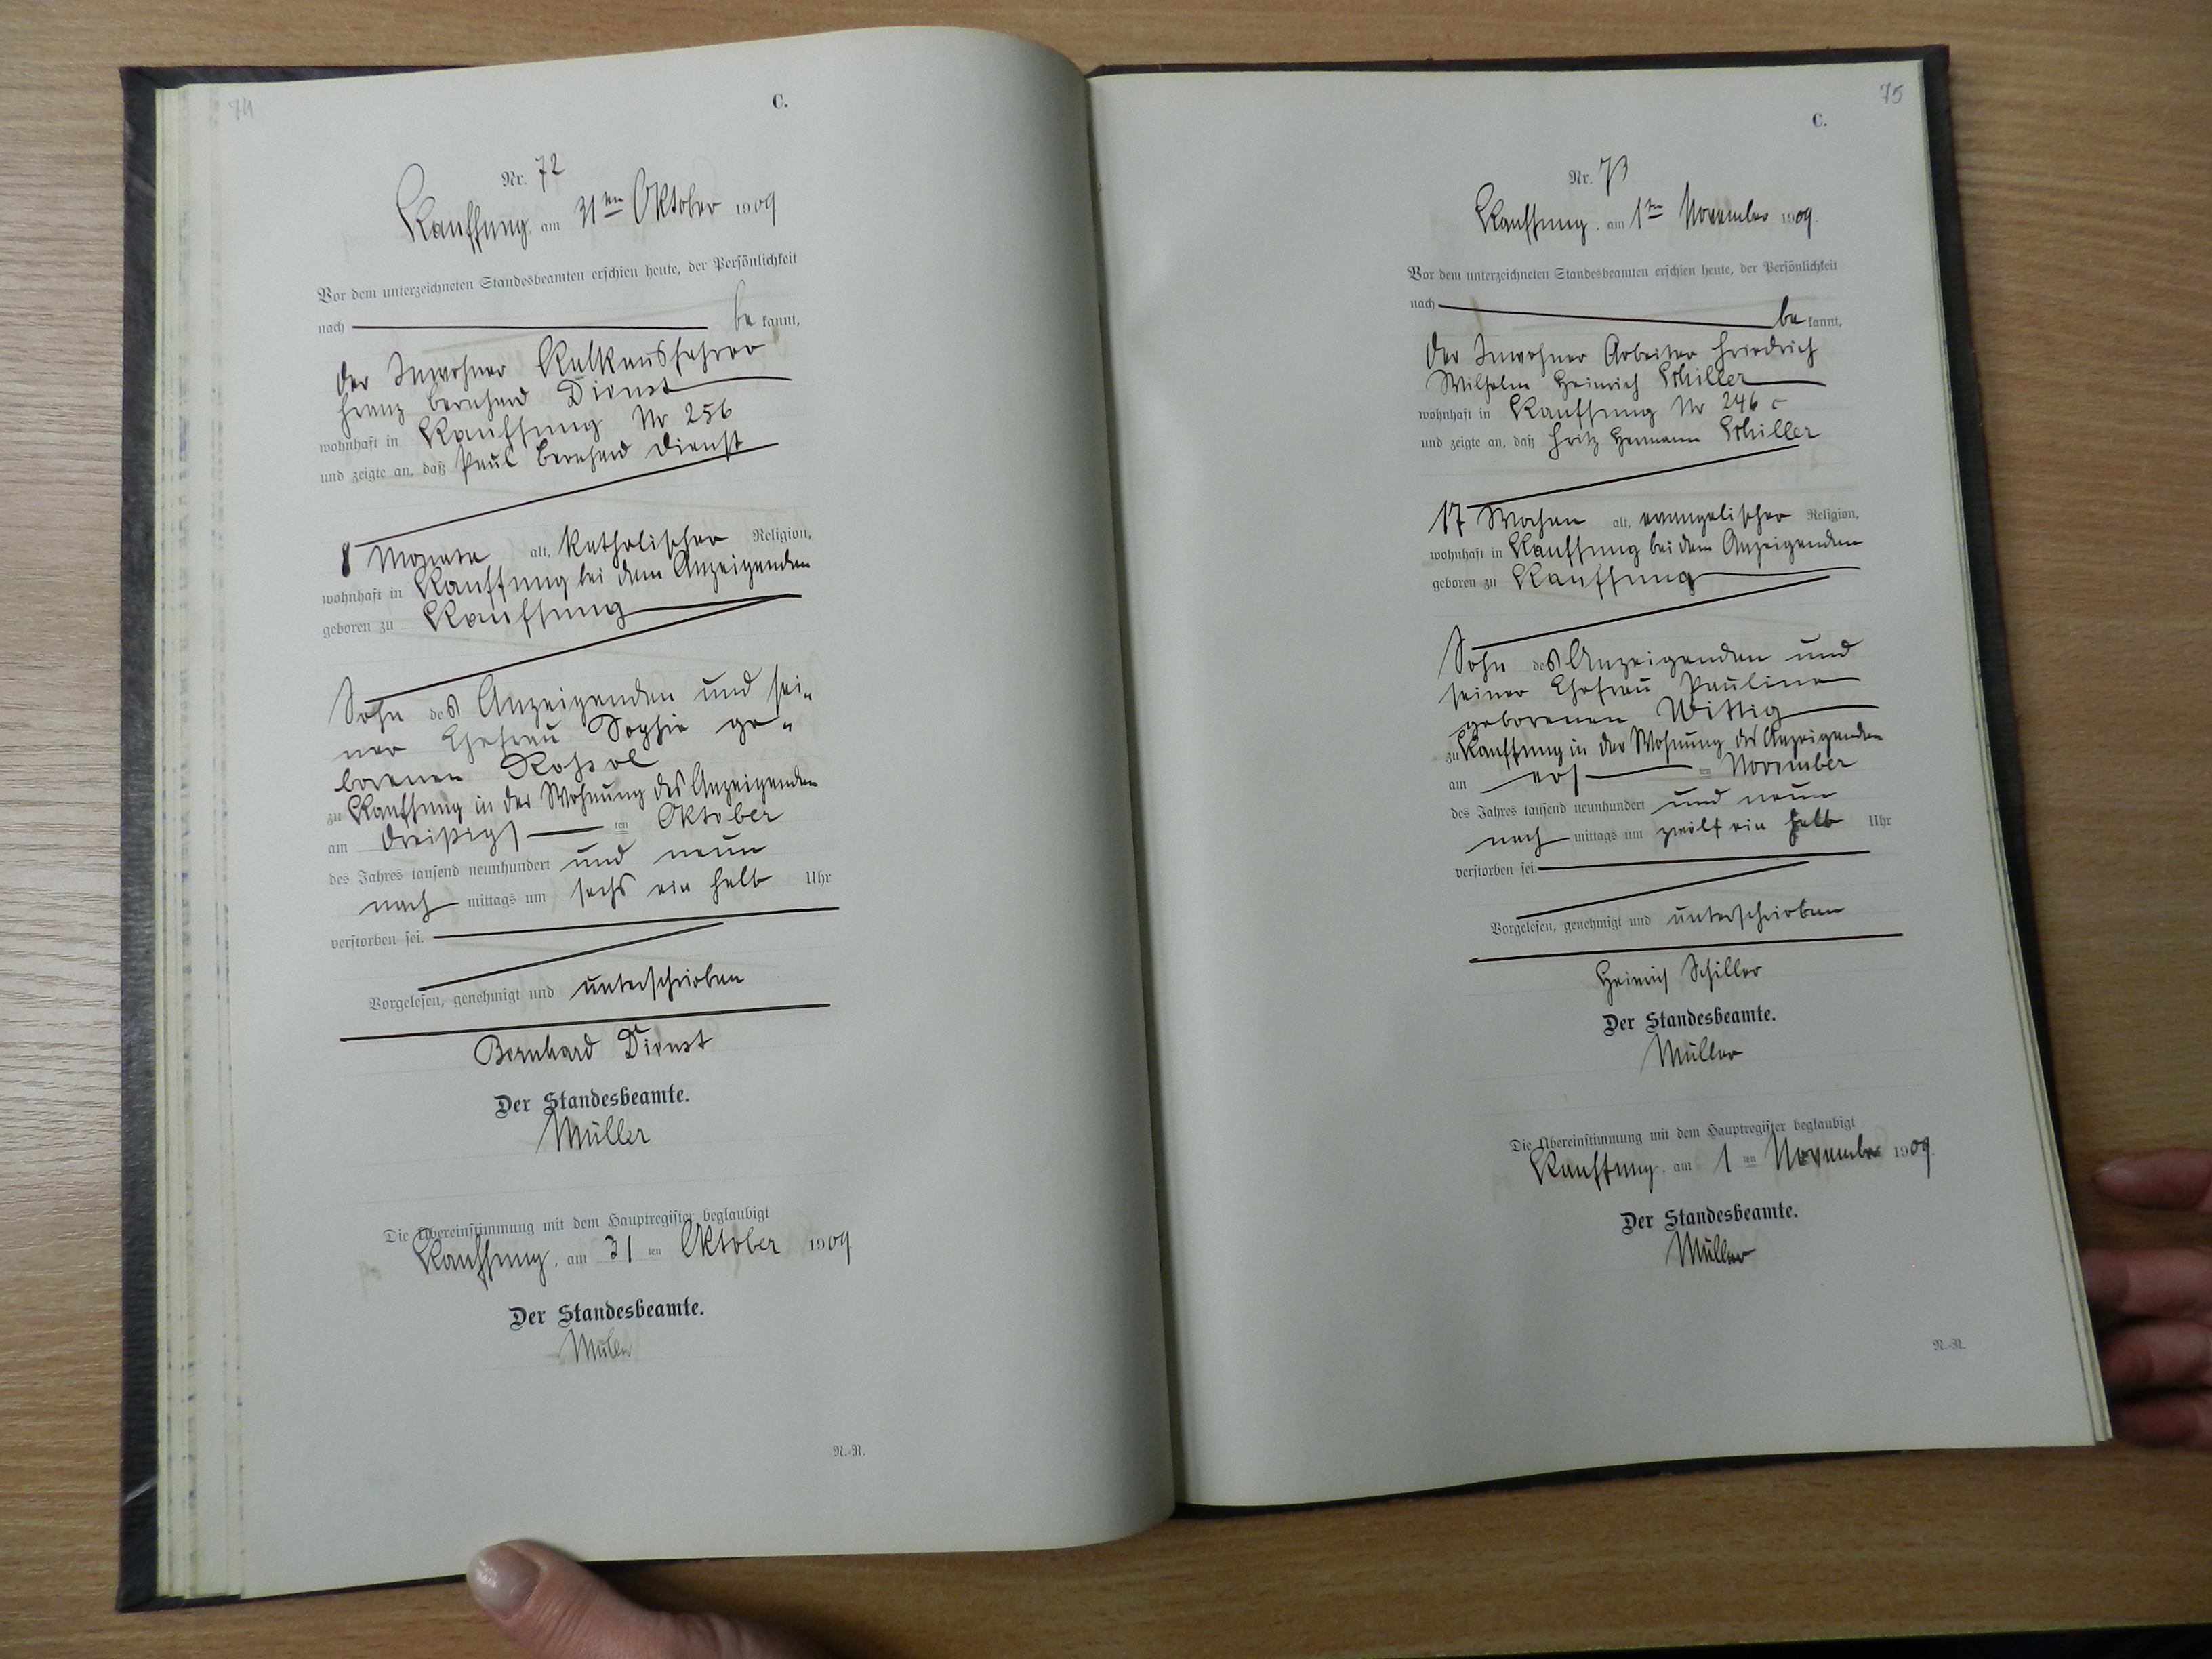 74
C.
Nr. 72
Kauffung, am 31ten Oktober 1909
Vor dem unterzeichneten Standesbeamten erschien heute, der Persönlichkeit
nach be kannt,
der Inwohner Kalkausfahrer
Franz Bernhard Dienst
wohnhaft in Kauffung Nr 256
und zeigte an, daß Paul Bernhard Dienst
8 Monate alt, katholischer Religion,
wohnhaft in Kauffung bei dem Anzeigenden
geboren zu Kauffung
Sohn des Anzeigenden und sei-
ner Ehefrau Sophie ge-
borenen
zu Kauffung in der Wohnung des Anzeigenden
am dreißigsten Oktober
des Jahres tausend neunhundert und neun
nach mittags um sechs ein halb Uhr
verstorben sei.
Vorgelesen, genehmigt und unterschrieben
Bernhard Dienst
Der Standesbeamte.
Müller
Die Übereinstimmung mit dem Hauptregister beglaubigt
Kauffung, am 31 ten Oktober 1909.
Der Standesbeamte.
Müller
N.-R.
75
C.
Nr. 73
Kauffung, am 1ten November 1909.
Vor dem unterzeichneten Standesbeamten erschien heute, der Persönlichkeit
nach be kannt,
der Inwohner Arbeiter Friedrich
Wilhelm Heinrich Schiller
wohnhaft in Kauffung Nr 246 c
und zeigte an, daß Fritz Hermann Schiller
17 Wochen alt, evangelischer Religion,
wohnhaft in Kauffung bei dem Anzeigenden
geboren zu Kauffung
Sohn des Anzeigenden und
seiner Ehefrau Pauline
geborenen Wittig
zu Kauffung in der Wohnung des Anzeigenden
am ersten November
des Jahres tausend neunhundert und neun
nach mittags um zwölf ein halb Uhr
verstorben sei.
Vorgelesen, genehmigt und unterschrieben
Heinrich Schiller
Der Standesbeamte.
Müller
Die Übereinstimmung mit dem Hauptregister beglaubigt
Kauffung, am 1 ten November 1909.
Der Standesbeamte.
Müller
N.-R.